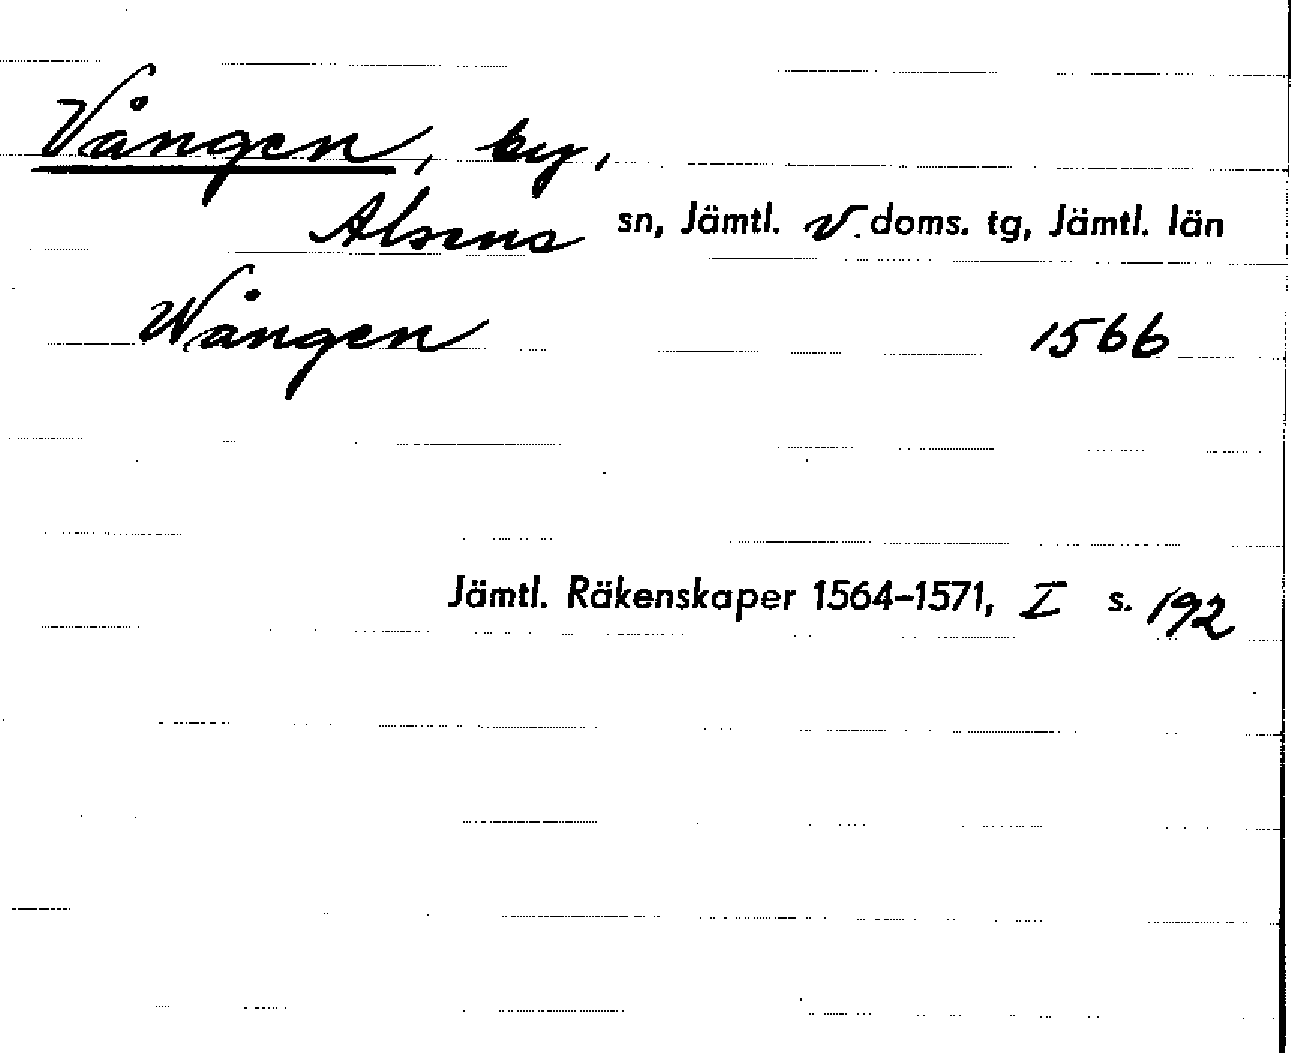 Vången, by,
Alsens sn, Jämtl. v. doms. tg, Jämtl. län
Wången 1566
Jämtl. Räkenskaper 1564-1571, I s. 192